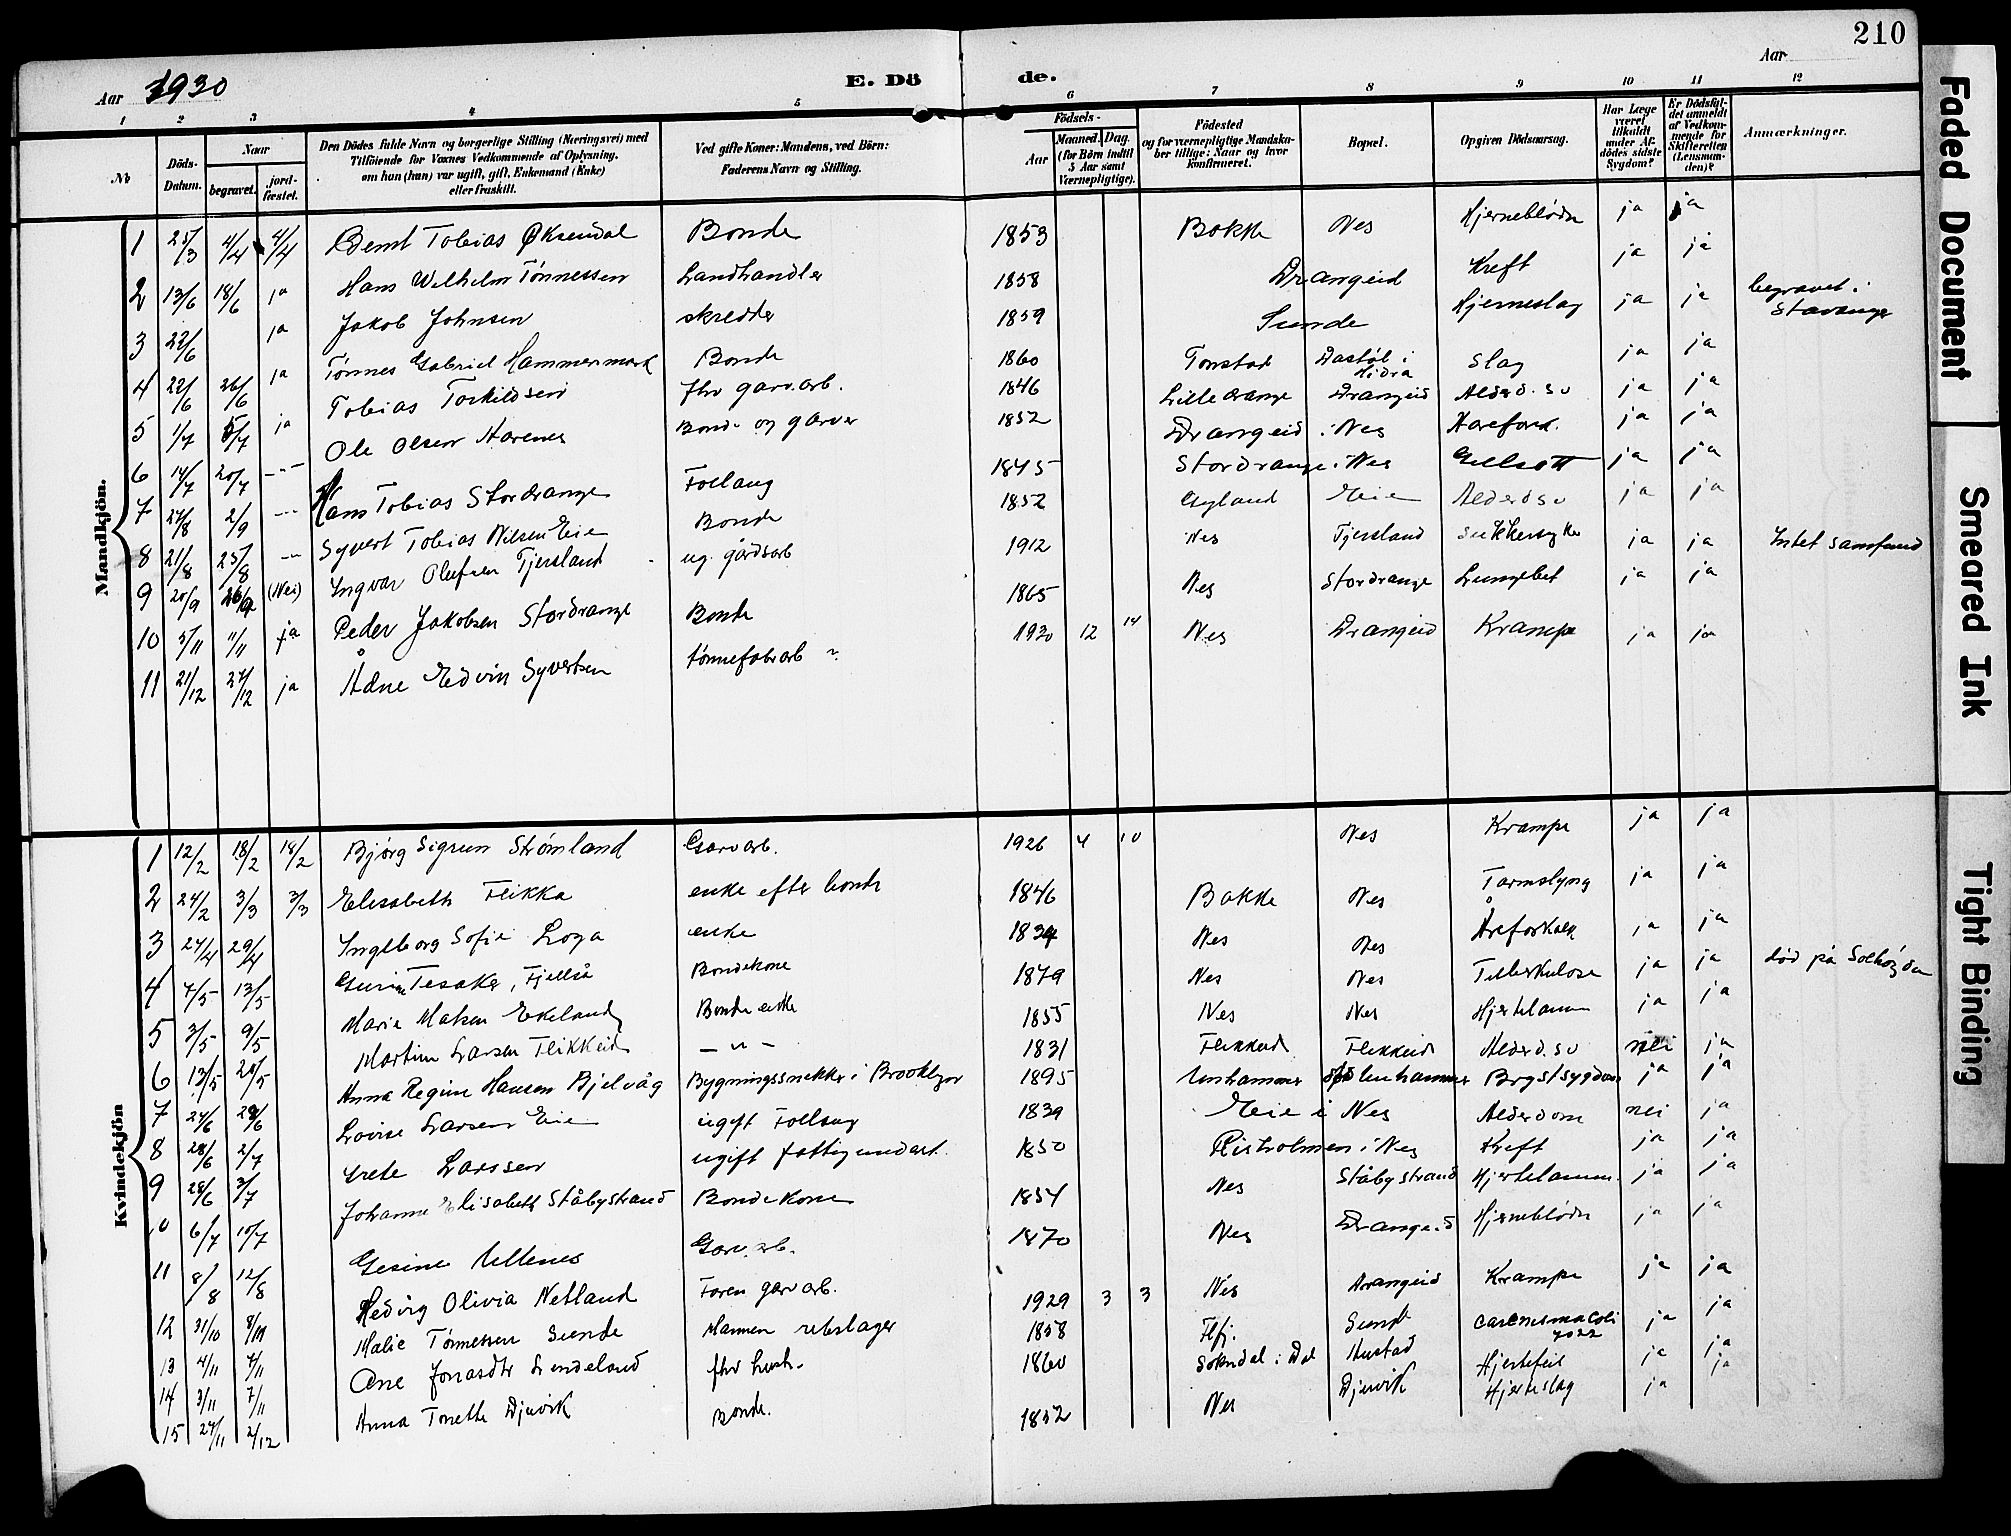 210
Aar 1930 E. Döde. Aar
1 2 3 4 5 6 7 8 9 10 11 12
No
Döds-Datum.
Naar begravet. jordfæstet.
Den Dödes fulde Navn og borgerlige Stilling (Næringsvei) med Tilföiende for Voxnes Vedkommende af Oplysning, om han (hun) var ugift, gift, Enkemand (Enke) eller fraskilt.
Ved gifte Koner: Mandens, ved Börn: Faderens Navn og Stilling.
Födsels- Aar Maaned. Dag. (for Börn indtil 5 Aar samt Værnepligtige).
Födested og for værnepligtige Mandskaber tillige: Naar og hvor konfirmeret.
Bopæl.
Opgiven Dödsaarsag.
Har Læge været tilkaldt under Afdödes sidste Sygdom?
Er Dödsfaldet anmeldt af Vedkommende for Skifteretten (Lensmanden)?
Anmærkninger.
Mandkjön.
1 25/3 4/4 4/4 Bernt Tobias Øksendal Bonde 1853 Bakke Nes Hjerneblödn ja ja
2 13/6 18/6 ja Hans Wilhelm Tønnessen Landhandler 1858 Drangeid Kreft ja ja
3 22/6 ja Jakob Johnsen skredder 1859 Sunde Hjerneslag ja ja begravet i Stavanger
4 22/6 26/6 ja Tønnes Gabriel Hammermark Bonde 1860 Tonstad Dastøl i Hidra Slag ja ja
5 1/7 5/7 ja Tobias Torkildsen fhv garv.arb. 1846 Lilledrange Drangeid Alderd.sv ja ja
6 14/7 20/7 -"- Ole Olsen Aarenes Bonde og garver 1852 Drangeid i Nes Aarefork. ja ja
7 27/8 2/9 -"- Hans Tobias Stordrange Follaug 1845 Stordrange i Nes Gulsott ja ja
8 21/8 25/8 -"- Syvert Tobias Nilsen Eie Bonde 1852 Gyland Eie Alderdsv ja ja
9 20/9 26/9 (Nei) Ingvar Olufsen Tjersland ug. gårdsarb 1912 Nes Tjersland Sukkersyke ja ja Intet samfund
10 5/11 11/11 ja Peder Jakobsen Stordrange Bonde 1865 Nes Stordrange Lungebet ja ja
11 21/12 27/12 ja Ådne Edvin Syvertsen tønnefabrarb 1930 12 14 Nes Drangeid Krampe ja ja
Kvindekjön
1 12/2 18/2 18/2 Bjørg Sigrun Strømland Garvarb. 1926 4 10 Nes Krampe ja ja
2 24/2 3/3 3/3 Elisabeth Flikka enke efter bonde 1846 Bakke Nes Tarmslyng ja ja
3 24/4 29/4 Ingeborg Sofie Loga enke 1834 Nes Nes Åreforkalk ja ja
4 7/5 13/5 Gurine Tesaker, Fjellså Bondekone 1879 Nes Nes Tuberkulose ja ja død på Solhøgda
5 3/5 9/5 Marie Matsen Ekeland Bonde enke 1855 Nes Nes Hjertelamm ja ja
6 13/5 20/5 Martine Larsen Flikkeid -"- 1831 Flikkeid Flikkeid Alderd.sv nei ja
7 24/6 29/6 Anna Regine Hansen Bjelvåg Bygningssnekker i Brooklyn 1895 Brystsygdom ja ja
8 28/6 2/7 Lovise Larsen Eie ugift Follaug 1839 Eie i Nes Alderdom nei ja
9 28/6 3/7 Grete Larssen ugift fattigunderst. 1850 Risholmen i Nes Kreft ja ja
10 6/7 10/7 Johanne Elisabeth Ståbystrand Bondekone 1854 Nes Ståbystrand Hjertelamm. ja ja
11 8/8 12/8 Gesine Mellenes Garv.arb. 1870 Nes Drangeid Hjerneblödn ja ja
12 31/10 8/11 Hedvig Olivia Netland Faren garvarb. 1929 3 3 Nes Drangeid Krampe ja ja
13 4/11 4/11 Malie Tønnessen Sunde Mannen rebslager 1858 Flfj. Sunde ja ja
14 3/11 7/11 Ane Jonasdtr Lindeland fhv hush. 1860 Sokndal i Dal Hustad Hjertefeil ja ja
15 27/11 2/12 Anna Tonette Djuvik Bonde. 1852 Nes Djuvik Hjerteslag ja ja
Faded Document
Smeared Ink
Tight Binding